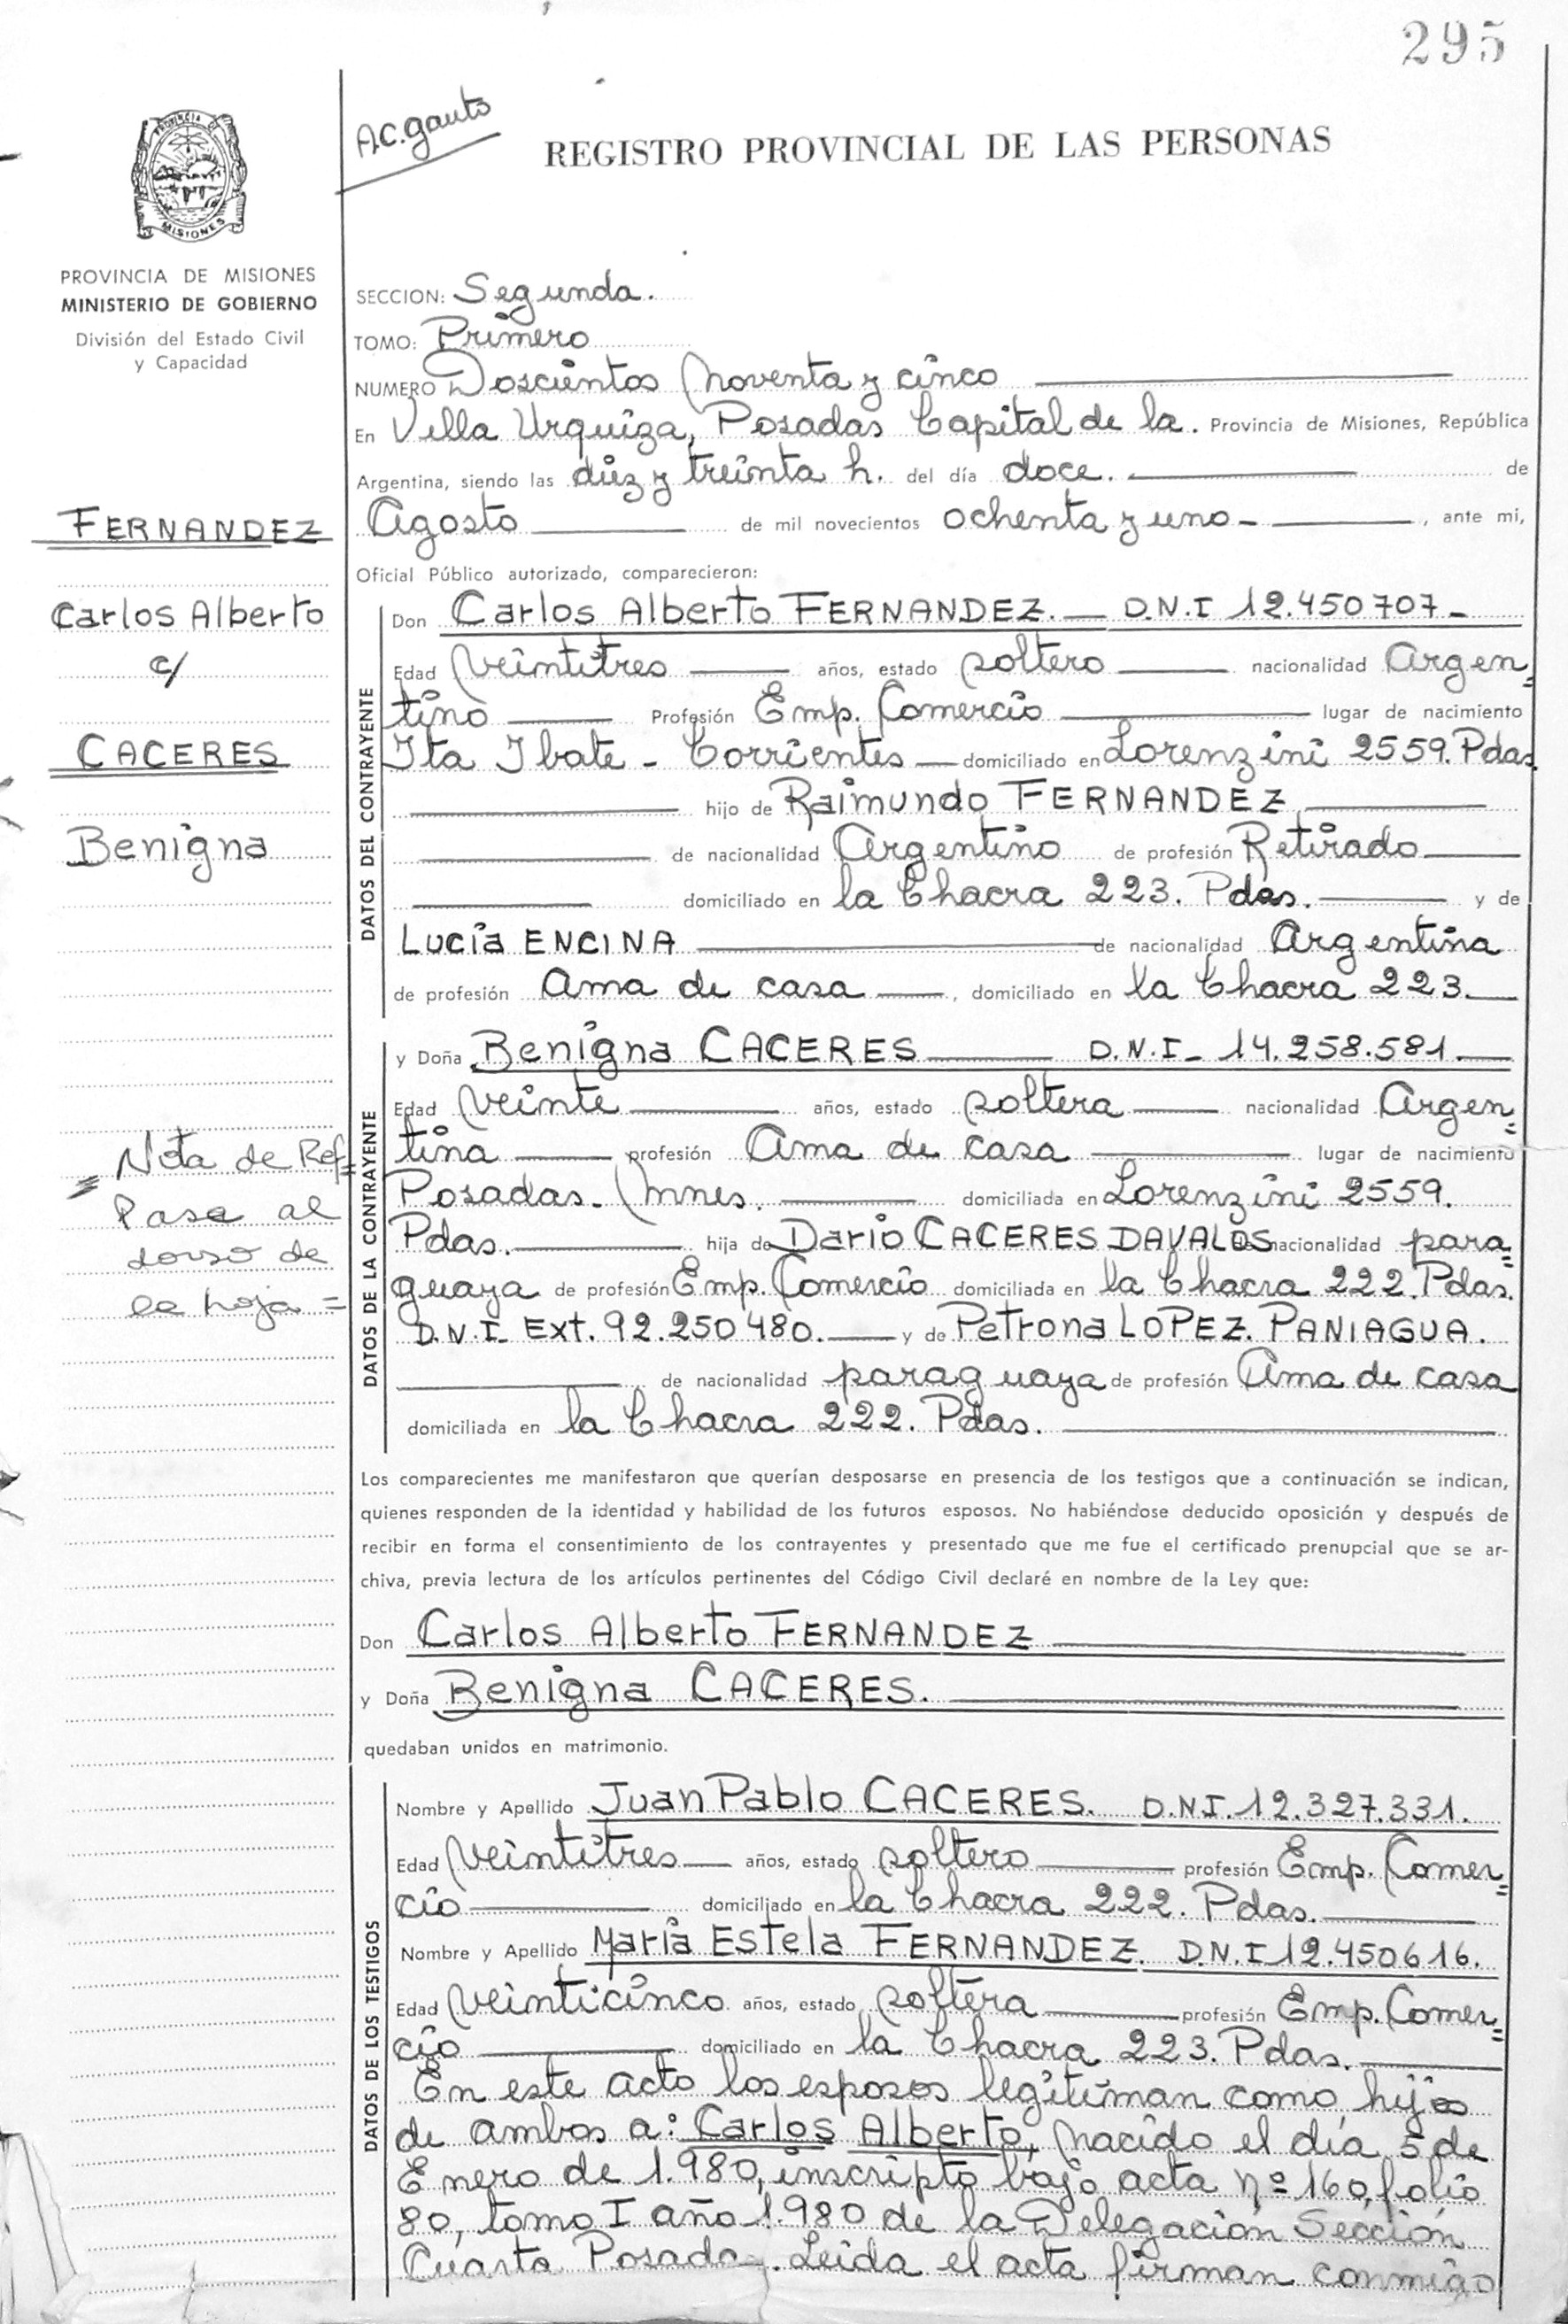 295
A.C. gauto
REGISTRO PROVINCIAL DE LAS PERSONAS
PROVINCIA DE
MISIONES
PROVINCIA DE MISIONES
MINISTERIO DE GOBIERNO
División del Estado Civil
y Capacidad
FERNANDEZ
Carlos Alberto
c/
CACERES
Benigna
= Nota de Ref=
Pasa al
dorso de
la hoja =
SECCION: Segunda.
TOMO: Primero
NUMERO Doscientos Noventa y cinco
En Villa Urquiza, Posadas Capital de la. Provincia de Misiones, República
Argentina, siendo las diez y treinta h. del día doce. de
Agosto de mil novecientos ochenta y uno - , ante mi,
Oficial Público autorizado, comparecieron:
DATOS DEL CONTRAYENTE
Don Carlos Alberto FERNANDEZ. — D.N.I 12.450707 -
Edad Veintitres años, estado soltero nacionalidad Argen=
tino Profesión Emp. Comercio lugar de nacimiento
Ita Ibate - Corrientes domiciliado en Lorenzini 2559. Pdas.
hijo de Raimundo FERNANDEZ
de nacionalidad Argentino de profesión Retirado
domiciliado en la Chacra 223. Pdas. y de
Lucía ENCINA de nacionalidad Argentina
de profesión Ama de casa , domiciliado en la Chacra 223.
DATOS DE LA CONTRAYENTE
y Doña Benigna CACERES D.N.I - 14.258.581.
Edad Veinte años, estado soltera nacionalidad Argen=
tina profesión Ama de casa lugar de nacimiento
Posadas - Mnes. domiciliada en Lorenzini 2559.
Pdas. hija de Dario CACERES DAVALOS nacionalidad para=
guaya de profesión Emp. Comercio domiciliada en la Chacra 222. Pdas.
D.N.I - Ext. 92.250480. y de Petrona LOPEZ. PANIAGUA.
de nacionalidad paraguaya de profesión Ama de casa
domiciliada en la Chacra 222. Pdas.
Los comparecientes me manifestaron que querían desposarse en presencia de los testigos que a continuación se indican,
quienes responden de la identidad y habilidad de los futuros esposos. No habiéndose deducido oposición y después de
recibir en forma el consentimiento de los contrayentes y presentado que me fue el certificado prenupcial que se ar-
chiva, previa lectura de los artículos pertinentes del Código Civil declaré en nombre de la Ley que:
Don Carlos Alberto FERNANDEZ
y Doña Benigna CACERES.
quedaban unidos en matrimonio.
DATOS DE LOS TESTIGOS
Nombre y Apellido Juan Pablo CACERES. D.N.I. 12.327.331.
Edad Veintitres años, estado soltero profesión Emp. Comer=
cio domiciliado en la Chacra 222. Pdas.
Nombre y Apellido María Estela FERNANDEZ. D.N.I 12.450616.
Edad Veinticinco años, estado soltera profesión Emp. Comer=
cio domiciliado en la Chacra 223. Pdas.
En este acto los esposos legitiman como hijo
de ambos a: Carlos Alberto, nacido el día 5 de
Enero de 1.980, inscripto bajo acta nº 160, folio
80, tomo I año 1.980 de la Delegación Sección
Cuarta Posadas. Leida el acta firman conmigo